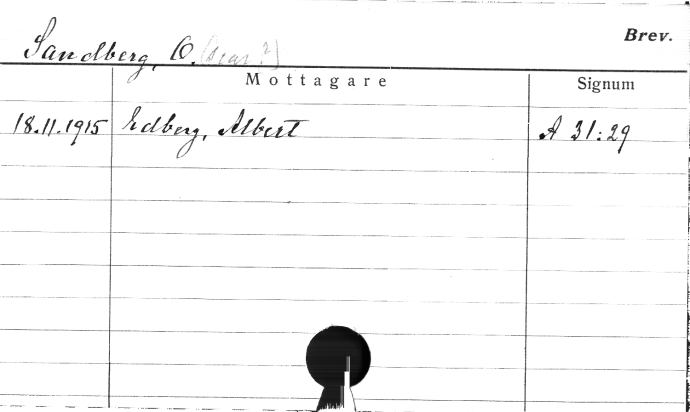 Brev.
Sandberg, O. (scar?)
Mottagare Signum
18.11.1915 Edberg, Albert A 31:29